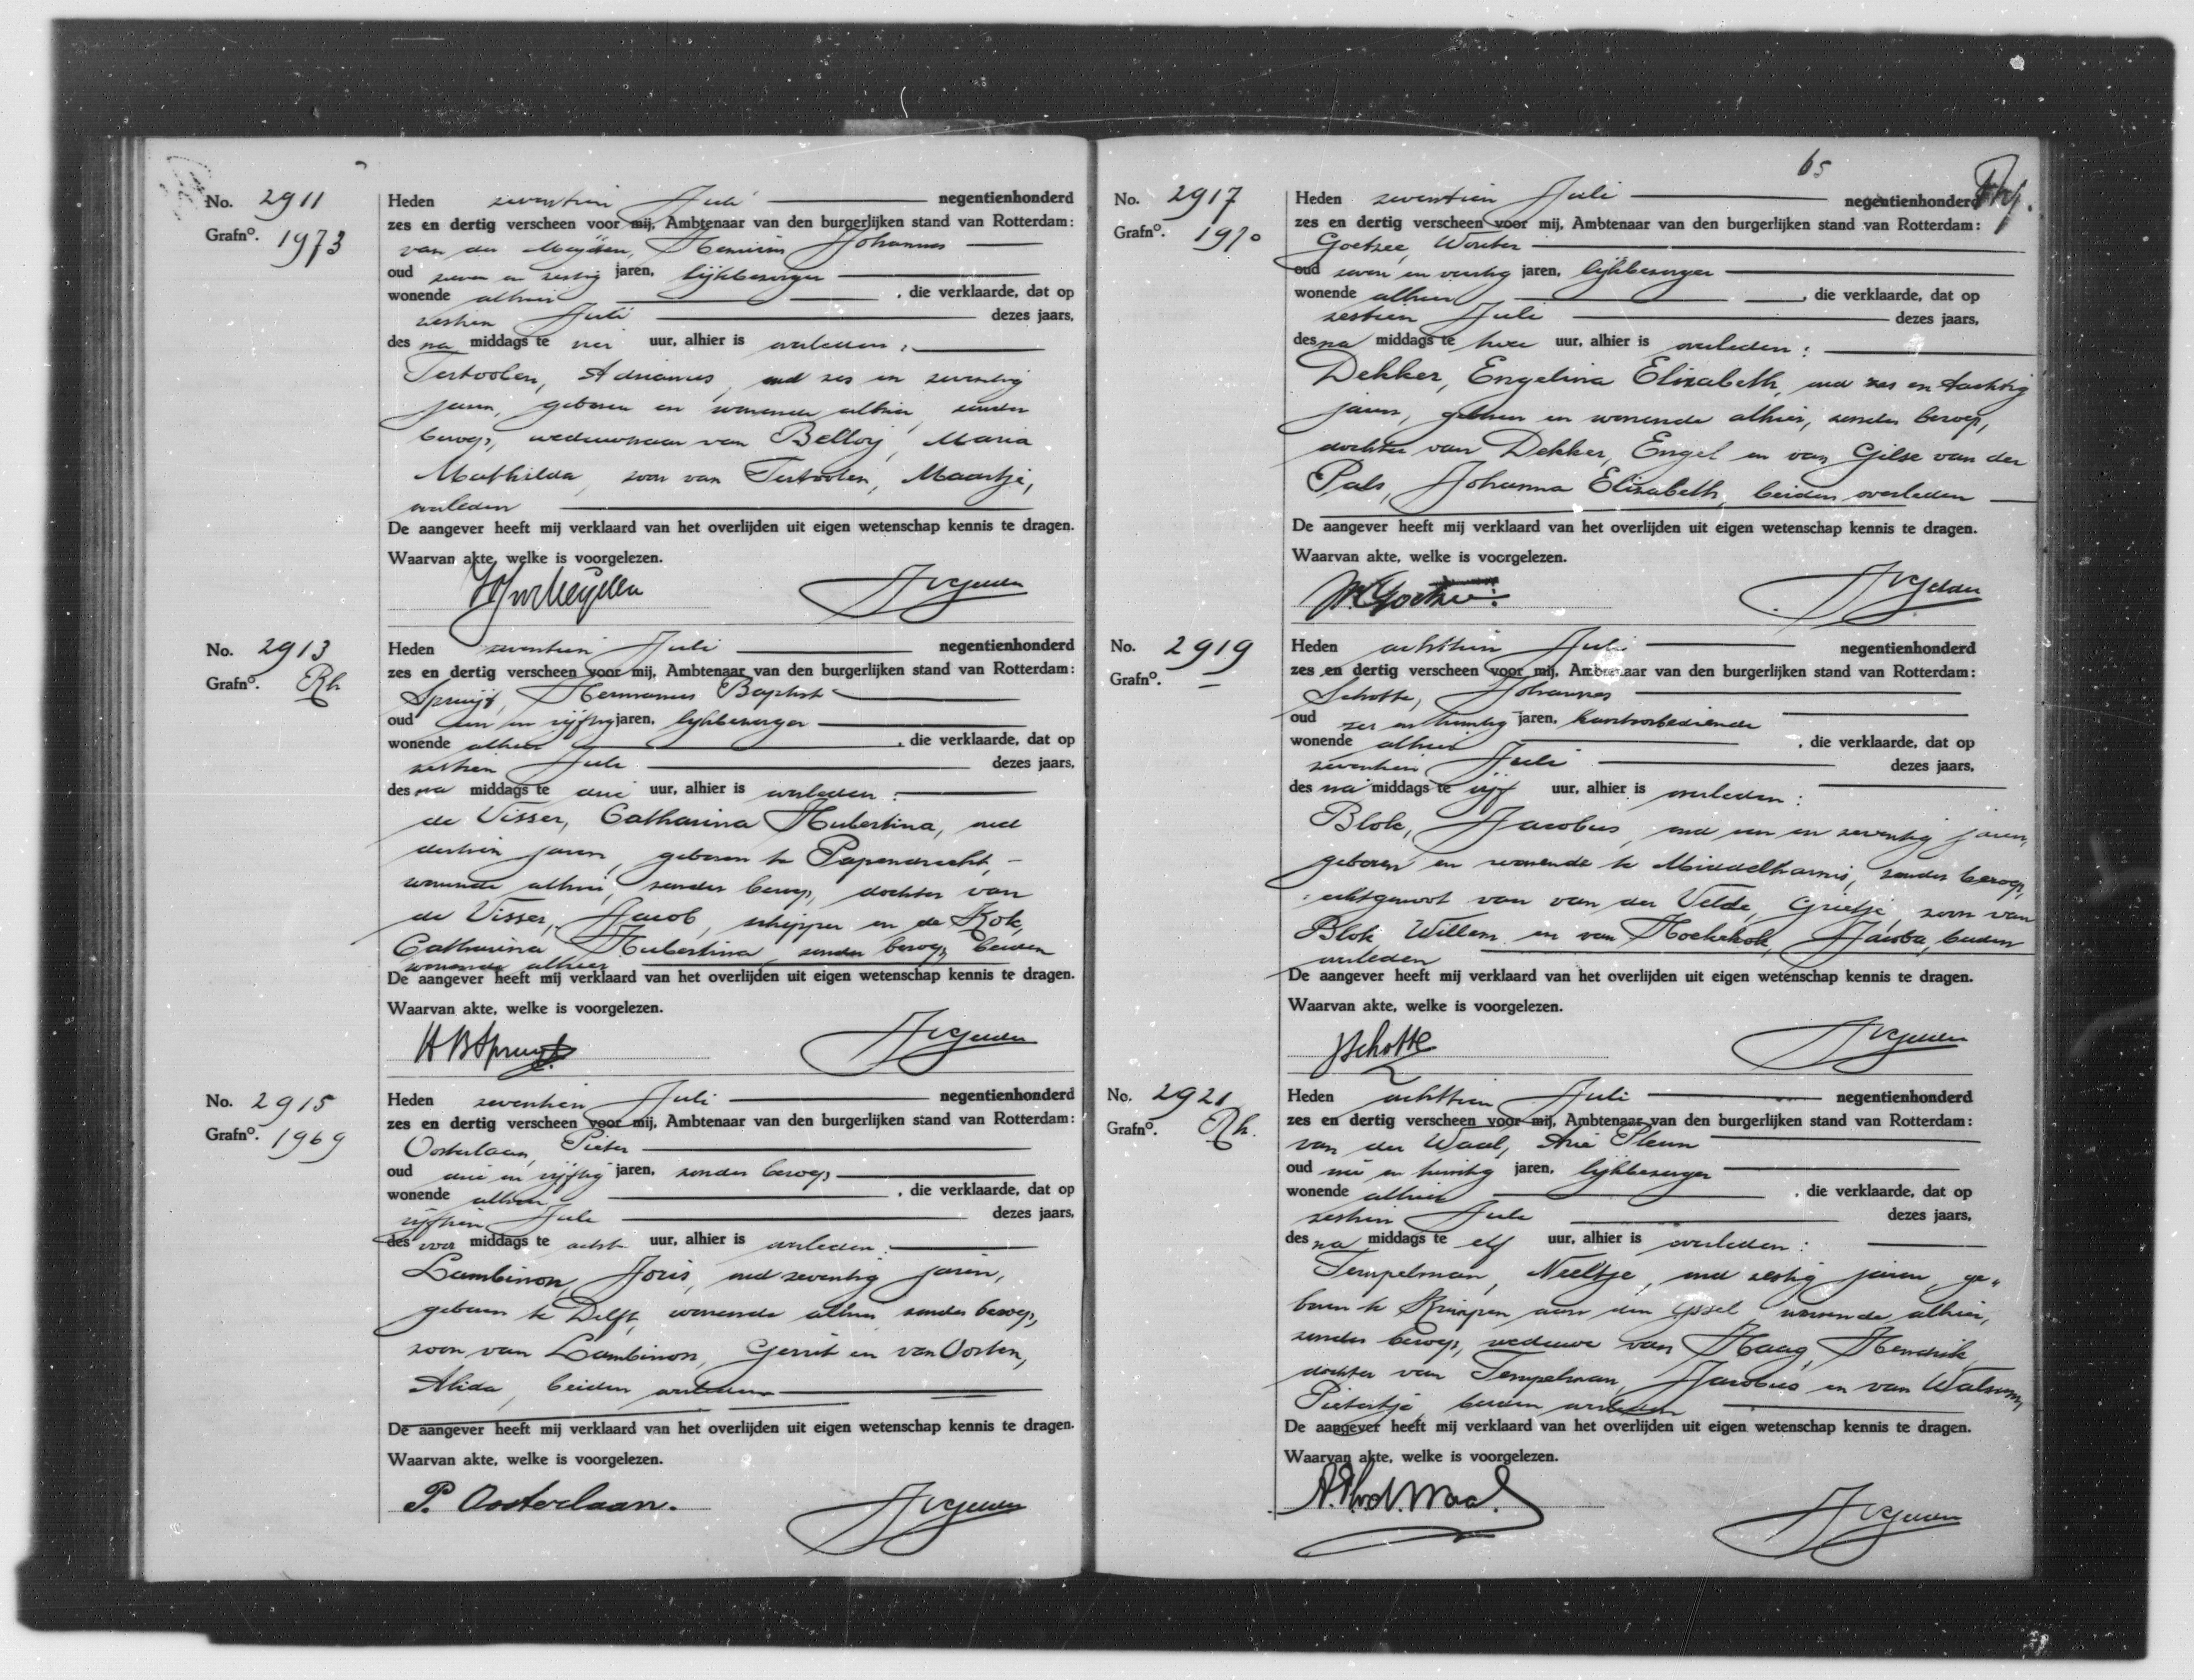 No. 2911
Grafno. 1973
Heden zeventien Juli negentienhonderd
zes en dertig verscheen voor mij, Ambtenaar van den burgerlijken stand van Rotterdam:
van der Meijden, Henricus Johannes
oud zeven en zestig jaren, lijkbezorger
wonende alhier , die verklaarde, dat op
zestien Juli dezes jaars,
des na middags te vier uur, alhier is overleden:
Tertoolen, Adrianus, oud zes en zeventig
jaren, geboren en wonende alhier, zonder
beroep, weduwnaar van Belloy, Maria
Mathilda, zoon van Tertoolen, Maartje,
overleden
De aangever heeft mij verklaard van het overlijden uit eigen wetenschap kennis te dragen.
Waarvan akte, welke is voorgelezen.
No. 2913
Grafno. Rh
Heden zeventien Juli negentienhonderd
zes en dertig verscheen voor mij, Ambtenaar van den burgerlijken stand van Rotterdam:
Spruijt, Hermanus Baptist
oud een en vijftig jaren, lijkbezorger
wonende alhier , die verklaarde, dat op
zestien Juli dezes jaars,
des na middags te drie uur, alhier is overleden:
de Visser, Catharina Hubertina, oud
dertien jaren, geboren te Papendrecht,
wonende alhier, zonder beroep, dochter van
de Visser, Jacob, schipper en de Kok,
Catharina Hubertina, zonder beroep, beiden
wonende alhier
De aangever heeft mij verklaard van het overlijden uit eigen wetenschap kennis te dragen.
Waarvan akte, welke is voorgelezen.
H B Spruijt
No. 2915
Grafno. 1969
Heden zeventien Juli negentienhonderd
zes en dertig verscheen voor mij, Ambtenaar van den burgerlijken stand van Rotterdam:
Oosterlaan, Pieter
oud drie en vijftig jaren, zonder beroep
wonende alhier , die verklaarde, dat op
vijftien Juli dezes jaars,
des voor middags te acht uur, alhier is overleden:
Lambinon, Joris, oud zeventig jaren,
geboren te Delft, wonende alhier, zonder beroep,
zoon van Lambinon, Gerrit en van Oosten,
Alida, beiden overleden
De aangever heeft mij verklaard van het overlijden uit eigen wetenschap kennis te dragen.
Waarvan akte, welke is voorgelezen.
P. Oosterlaan.
65
No. 2917
Grafno. 1970
Heden zeventien Juli negentienhonderd
zes en dertig verscheen voor mij, Ambtenaar van den burgerlijken stand van Rotterdam:
Goetzee, Wouter
oud zeven en veertig jaren, lijkbezorger
wonende alhier , die verklaarde, dat op
zestien Juli dezes jaars,
des na middags te twee uur, alhier is overleden:
Dekker, Engelina Elizabeth, oud zes en tachtig
jaren, geboren en wonende alhier, zonder beroep,
dochter van Dekker, Engel en van Gilse van der
Pals, Johanna Elizabeth, beiden overleden
De aangever heeft mij verklaard van het overlijden uit eigen wetenschap kennis te dragen.
Waarvan akte, welke is voorgelezen.
No. 2919
Grafno. —
Heden achttien Juli negentienhonderd
zes en dertig verscheen voor mij, Ambtenaar van den burgerlijken stand van Rotterdam:
Schotte, Johannes
oud zes en twintig jaren, kantoorbediende
wonende alhier , die verklaarde, dat op
zeventien Juli dezes jaars,
des na middags te vijf uur, alhier is overleden:
Blok, Jacobus, oud een en zeventig jaren,
geboren en wonende te Middelharnis, zonder beroep,
echtgenoot van van der Velde, Grietje, zoon van
Blok, Willem en van Jacoba, beiden
overleden
De aangever heeft mij verklaard van het overlijden uit eigen wetenschap kennis te dragen.
Waarvan akte, welke is voorgelezen.
J Schotte
No. 2921
Grafno. Rh.
Heden achttien Juli negentienhonderd
zes en dertig verscheen voor mij, Ambtenaar van den burgerlijken stand van Rotterdam:
van der Waal, Arie Pleun
oud en twintig jaren, lijkbezorger
wonende alhier , die verklaarde, dat op
zestien Juli dezes jaars,
des na middags te elf uur, alhier is overleden:
Tempelman, Neeltje, oud zestig jaren, ge-
boren te Krimpen aan den IJssel wonende alhier,
zonder beroep, weduwe van Haag, Hendrik
dochter van Tempelman, Jacobus en van Walsum,
Pietertje, beiden overleden
De aangever heeft mij verklaard van het overlijden uit eigen wetenschap kennis te dragen.
Waarvan akte, welke is voorgelezen.